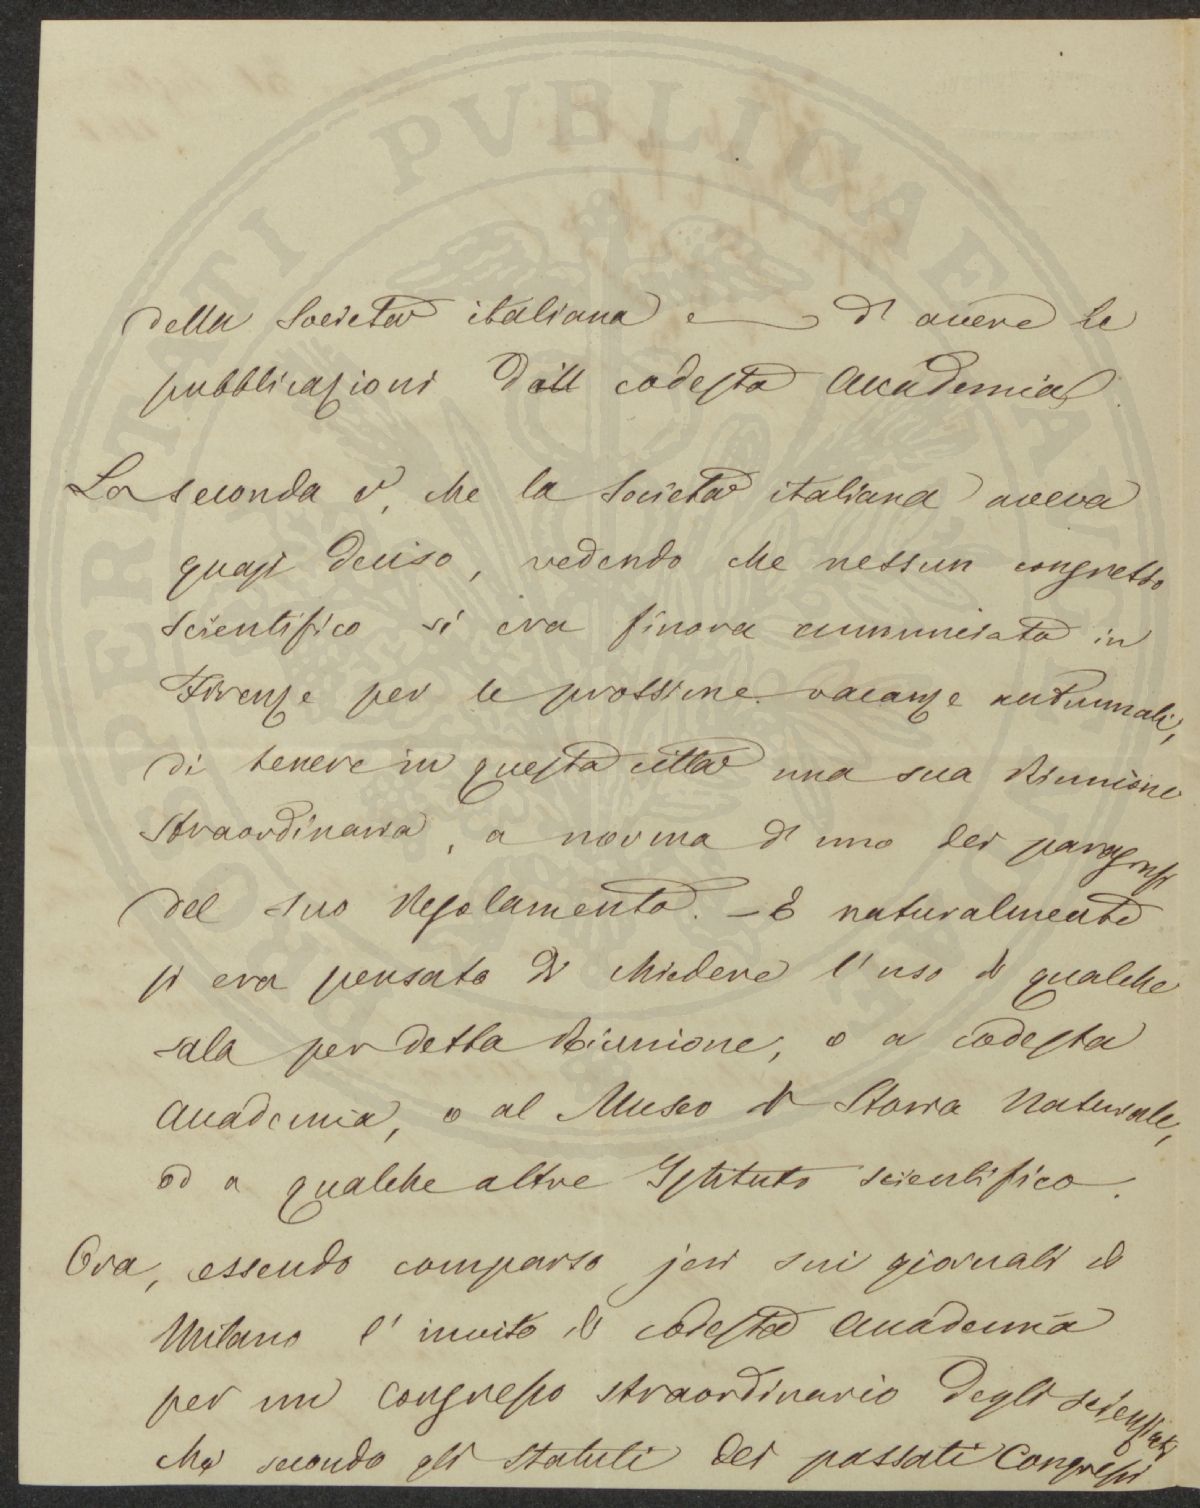 della Società italiana e di avere le
pubblicazioni dall codesta Accademia.
La seconda è, che la Società italiana aveva
quasi deciso, vedendo che nessun congresso
scientifico si era finora annunciato in
Firenze per le prossime vacanze autunnali,
di tenere in questa città una sua Riunione
straordinaria, a norma di uno dei paragrafi
del suo Regolamento. – E naturalmente
si era pensato di chiedere l'uso di qualche
sala per detta Riunione, o a codesta
Accademia, o al Museo di Storia Naturale,
od a qualche altro Istituto scientifico.
Ora, essendo comparso jeri sui giornali di
Milano l'invito di codesta Accademia
per un Congresso straordinario degli scienziati
che secondo gli statuti dei passati Congressi
PROSPERITATI PVBLICAE AVGENDAE